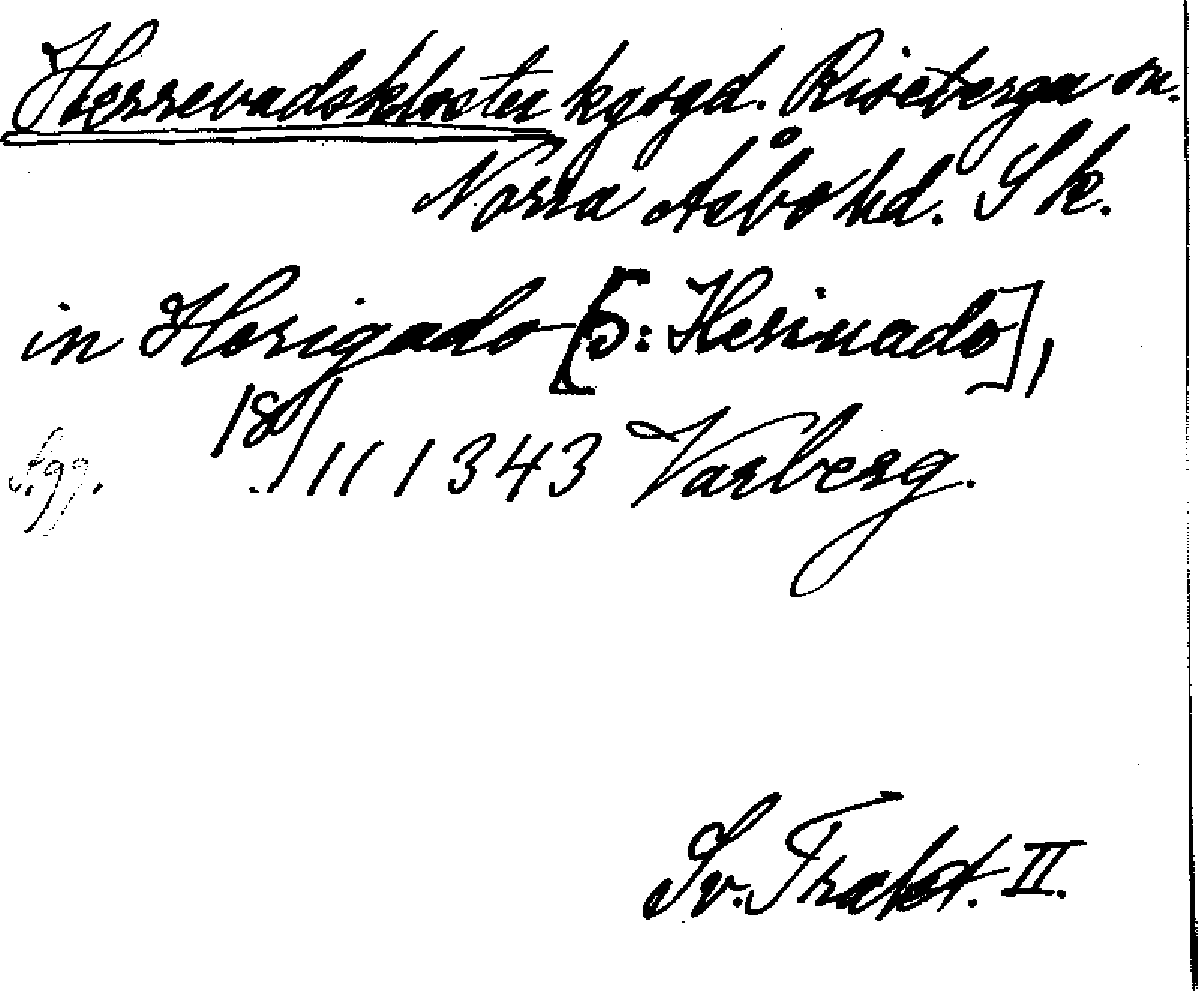 Herrevadskloster kgsgd. Riseberga sn.
Norra Åsbo hd. Sk.
in Herigado [ɔ: Heriuado],
18/11 1343 Varberg.
Agg.
Sv. Trakt. II.